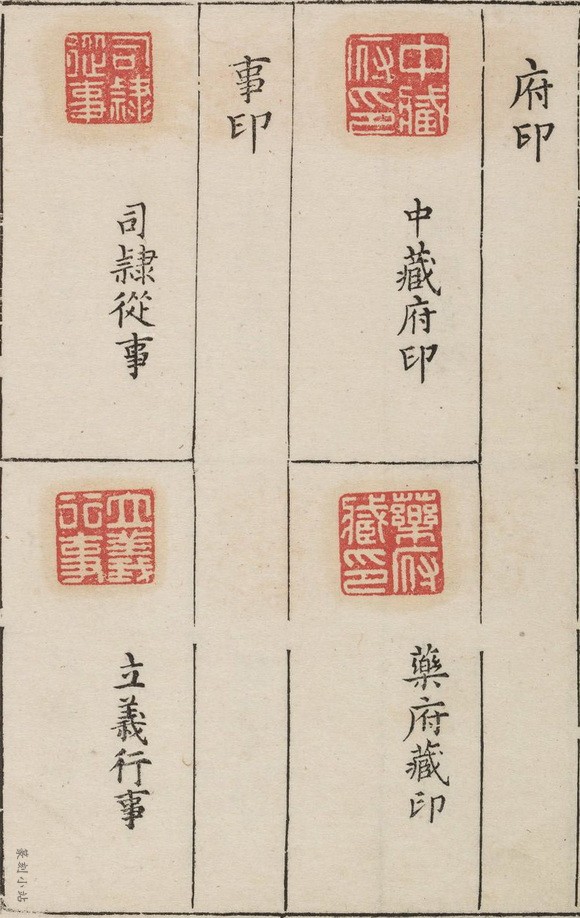 府印
中藏府印
中藏府印
藥府藏印
藥府藏印
事印
司隷從事
司隷從事
立義行事
立義行事
篆刻小站